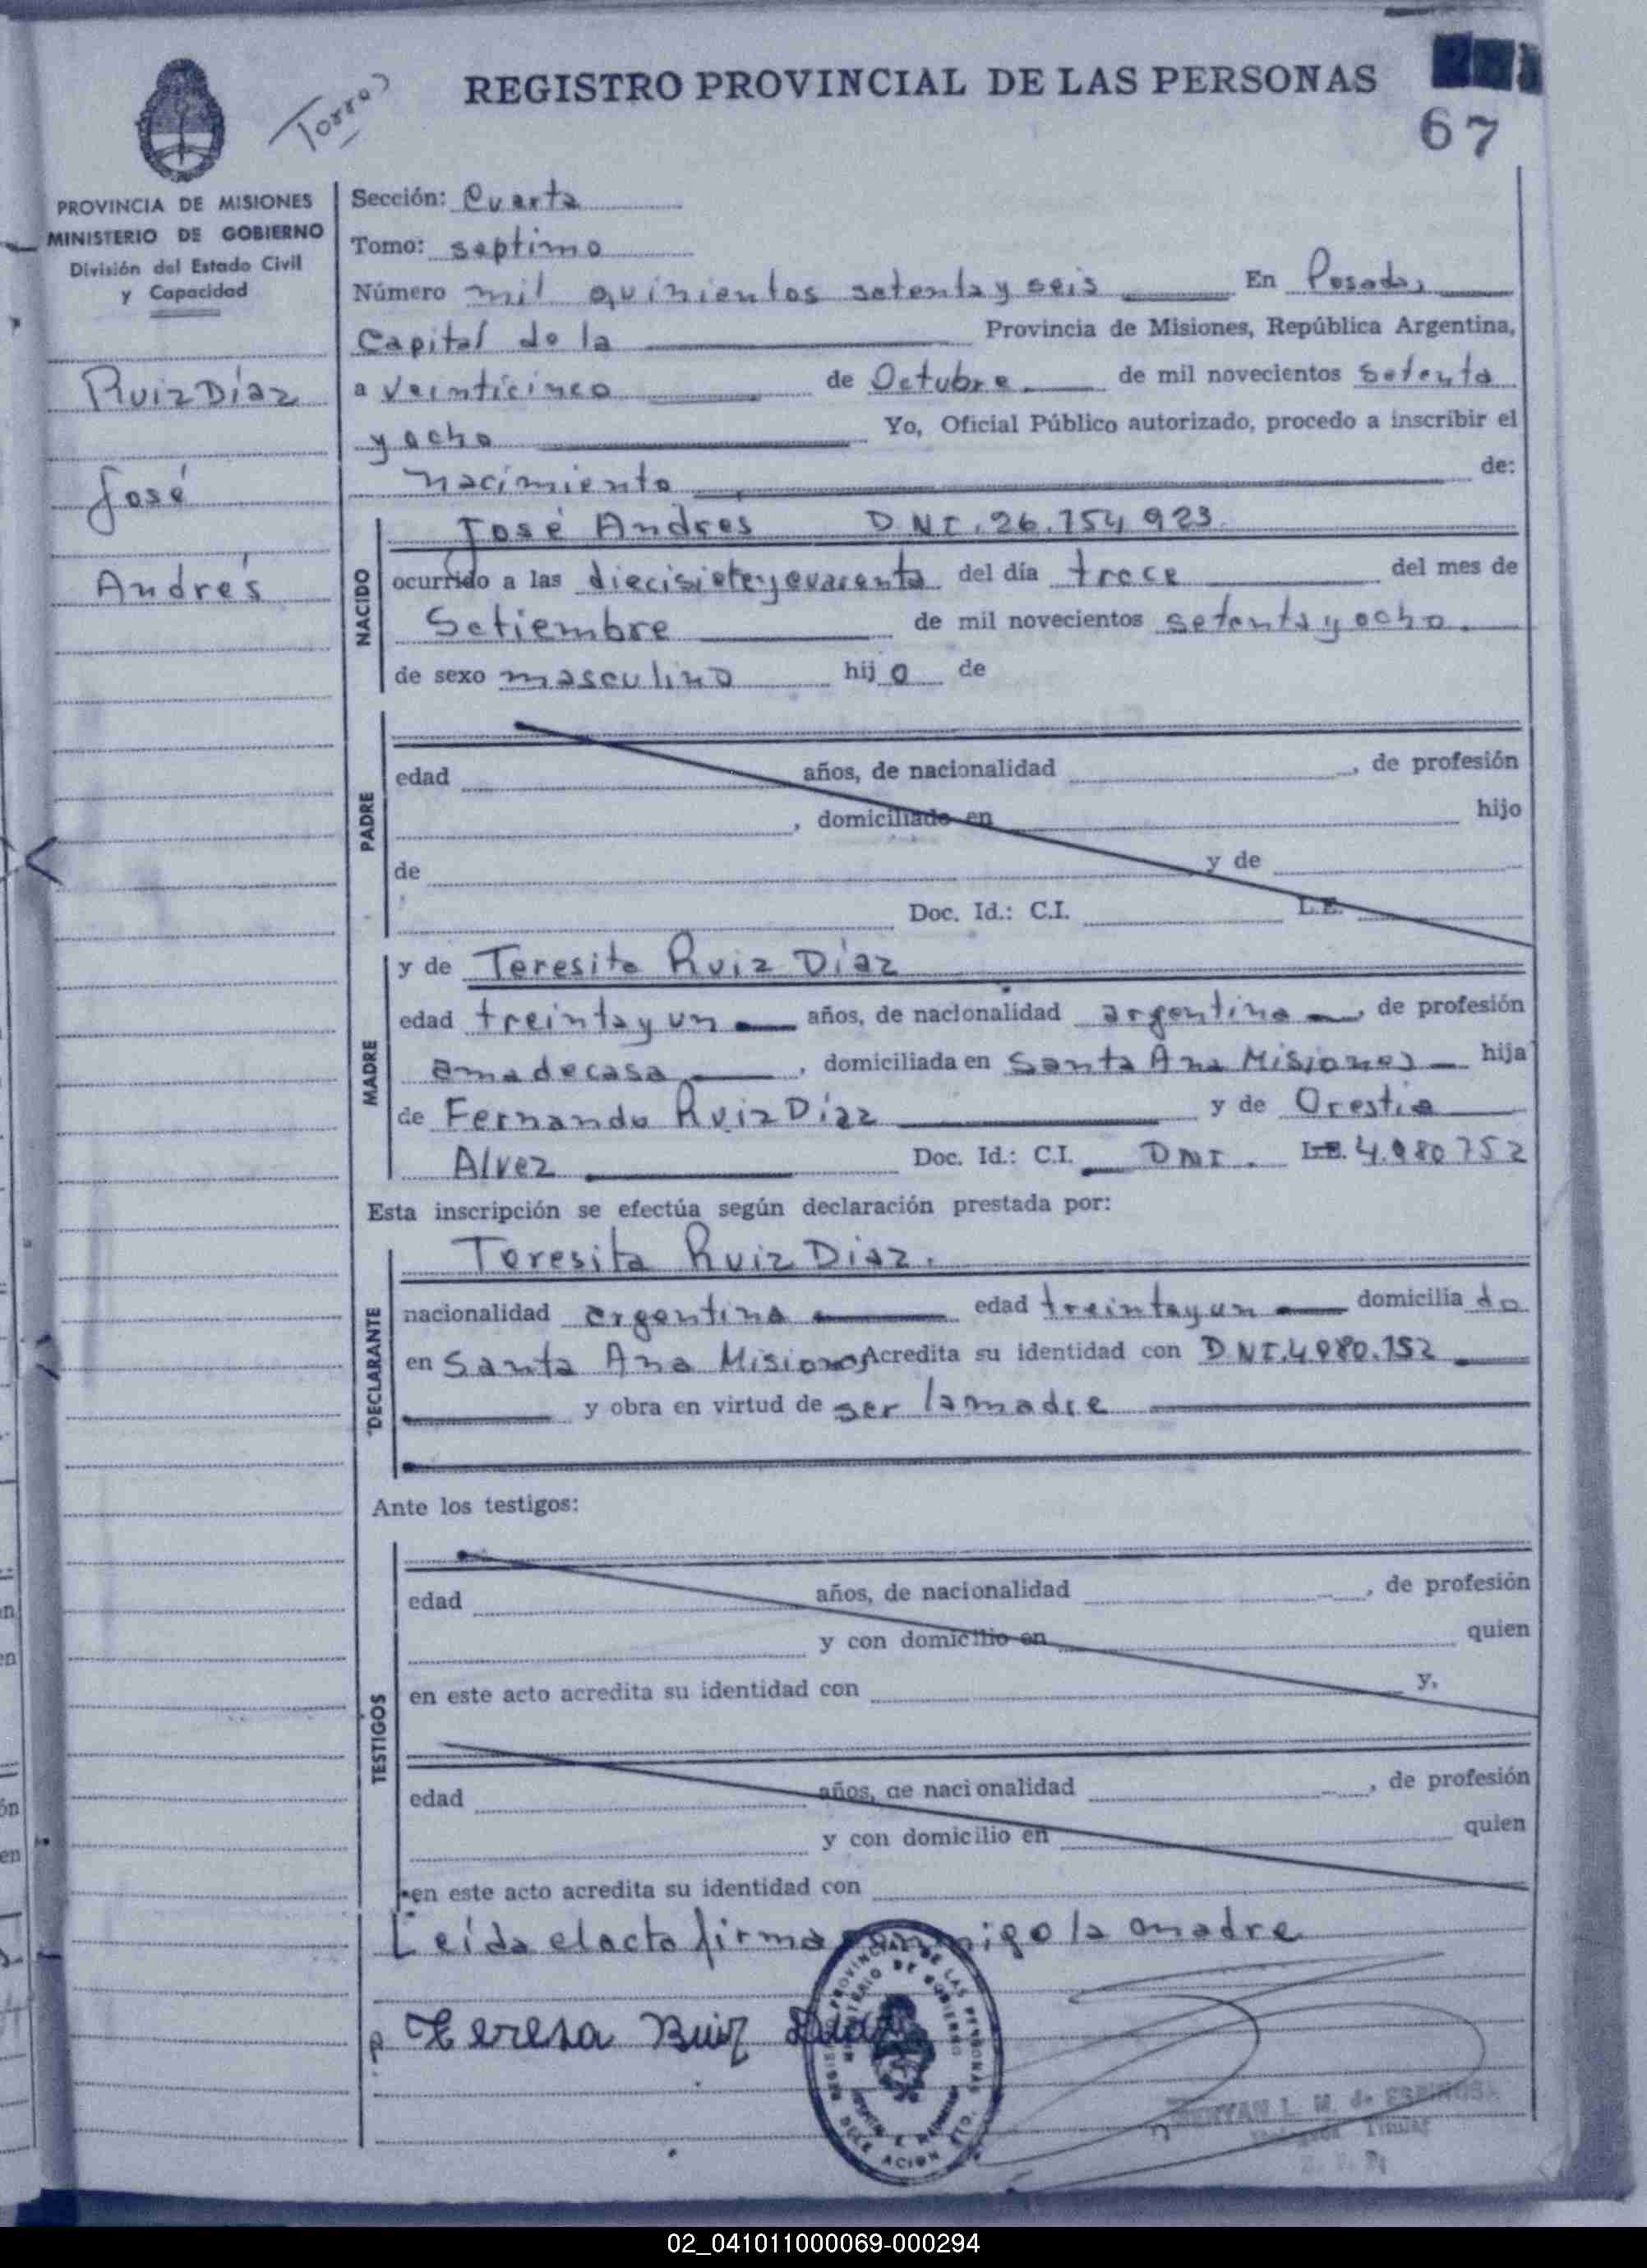 REGISTRO PROVINCIAL DE LAS PERSONAS
Torres
67
PROVINCIA DE MISIONES
MINISTERIO DE GOBIERNO
División del Estado Civil
y Capacidad
Ruiz Díaz
José
Andrés
Sección: Cuarta
Tomo: septimo
Número mil quinientos setenta y seis En Posadas
Capital de la Provincia de Misiones, República Argentina,
a veinticinco de Octubre de mil novecientos setenta
y ocho Yo, Oficial Público autorizado, procedo a inscribir el
nacimiento de:
NACIDO
José Andres DNI. 26.754,923
ocurrido a las diecisiete y cuarenta del día trece del mes de
Setiembre de mil novecientos setenta y ocho
de sexo masculino hijo de
PADRE
edad años, de nacionalidad , de profesión
, domiciliado en hijo
de y de
Doc. Id.: C.I. L.E.
MADRE
y de Teresita Ruiz Díaz
edad treinta y un años, de nacionalidad argentina, de profesión
ama de casa, domiciliada en Santa Ana Misiones hija
de Fernando Ruiz Díaz y de Orestia
Alvez Doc. Id.: C.I. DNI. L.E. 4.980752
Esta inscripción se efectúa según declaración prestada por:
DECLARANTE
Teresita Ruiz Diaz.
nacionalidad argentina edad treinta y un domiciliado
en Santa Ana Misiones Acredita su identidad con DNI. 4980.752
y obra en virtud de ser la madre
Ante los testigos:
TESTIGOS
edad años, de nacionalidad , de profesión
y con domicilio en quien
en este acto acredita su identidad con y,
edad años, de nacionalidad , de profesión
y con domicilio en quien
en este acto acredita su identidad con
Leída el acta firma conmigo la madre
Teresa Ruiz Diaz
REGISTRO PROVINCIAL DE LAS PERSONAS
MINISTERIO DE GOBIERNO
L. M. de ESPINOSA
Titular
02_041011000069-000294